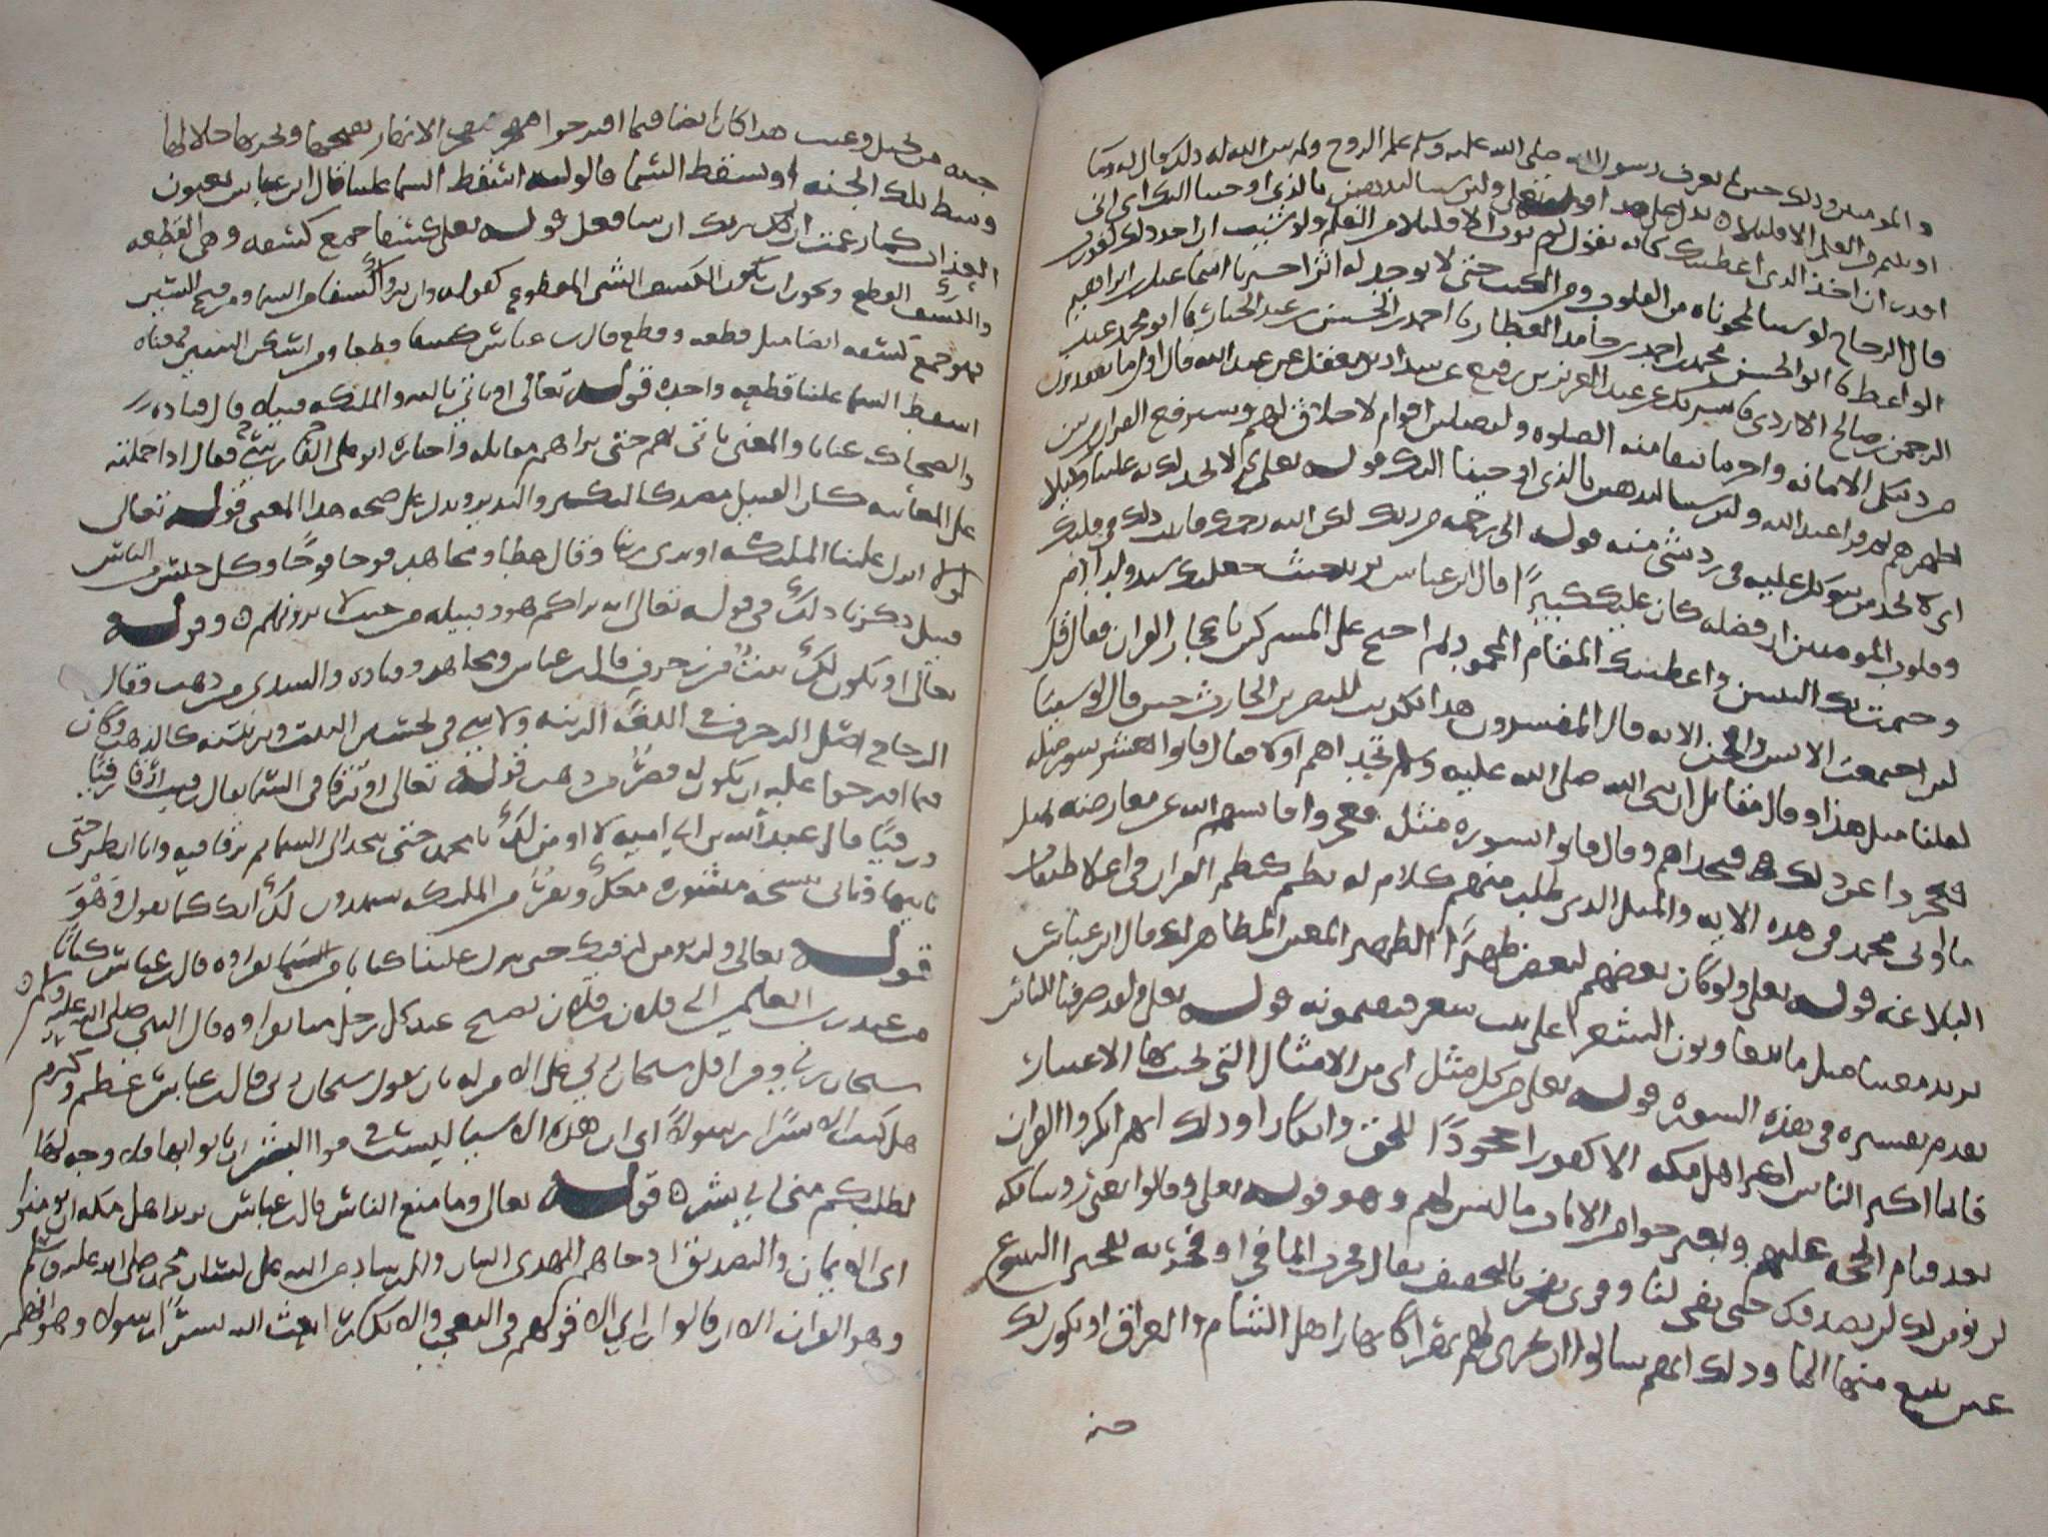 والمومنين وذلك حين لم يعرف رسول الله صلى الله عليه وسلم علم الروح ولم يبين الله له ذلك وقال له وما
اوتيتم من العلم الا قليلا ه يدل على هذا قوله تعالى ولئن شينا لنذهبن بالذي اوحينا اليك اي اني
اقدر ان اخذ الذي اعطيتك كانه يقول لم يوت الا قليلا من العلم ولو شئت ان اخذ ذلك لقدرت
قال الزجاج لو شينا لمحوناه من القلوب ومن الكتب حتى لا يوجد له اثر اخبرنا اسماعيل بن ابراهيم
الواعظ نا ابو الحسين محمد بن احمد بن حامد العطار نا احمد بن الحسين بن عبد الجبار نا ابو محمد عبد
الرحمن بن صالح الازدي نا شريك عن عبد العزيز بن رفيع عن شداد بن معقل عن عبد الله قال اول ما تفقدون
من دينكم الامانه واخر ما تبقا منه الصلوه وليصلين اقوام لا خلاق لهم وليرفعن القران من بين
اظهرهم ثم قرا عبد الله ولئن شينا لنذهبن بالذي اوحينا اليك قوله تعالى ثم لا تجد لك به علينا وكيلا
اي لا تجد من يتوكل عليه في رد شي منه قوله الا رحمه من ربك لكن الله رحمك فاثبت ذلك في قلبك
وقلوب المومنين ان فضله كان عليك كبيرًا قال ابن عباس يريد حيث جعلك سيد ولد ادم
وختم بك النبيين واعطيتك المقام المحمود ثم احتج على المشركين باعجاز القران فقال قل
لئن اجتمعت الانس والجن الايه قال المفسرون هذا تكذيب للنضر بن الحارث حين قال لو شينا
لقلنا مثل هذا وقال مقاتل ان نبي الله صلى الله عليه وسلم تحداهم اولا فقال فاتوا بعشر سور مثله
فعجزوا عن ذلك ثم تحداهم وقال فاتوا بسوره مثله فعجزوا فايسهم الله عن معارضته بمثل
ما اوتي محمد في هذه الايه والمثل الذي طلب منهم كلام له نظم كنظم القران في اعلا طبقات
البلاغه قوله تعالى ولو كان بعضهم لبعض ظهيرًا الظهير المعين المظاهر لك قال ابن عباس
يريد معينا مثل ما يتعاونون الشعرا على بيت شعر فيقيمونه قوله تعالى ولقد صرفنا للناس
تقدم تفسيره في هذه السوره قوله تعالى من كل مثل اي من الامثال التي يجب بها الاعتبار
فابى اكثر الناس اكثر اهل مكه الا كفورا جحودًا للحق وانكارا وذلك انهم انكروا القران
بعد قيام الحجه عليهم واقترحوا من الايات ما ليس لهم وهو قوله تعالى وقالوا يعني روسا مكه
لن نومن لك لن نصدقك حتى تفجر لنا وقرى تفجر بالتخفيف يقال فجرت الما فجرا وفجرته تفجيرا الينبوع
عين ينبع منها الما وذلك انهم سالوا ان يجري لهم نهرا كانهار اهل الشام والعراق او تكون لك
جنه
جنه من نخيل وعنب هذا كان ايضا فيما اقترحوا فتفجر الانهار تفتحها وتجريها خلالها
وسط تلك الجنه او تسقط السما قالوله اسقط السما علينا قال ابن عباس يعنون
العذاب كما زعمت ان ربك ان شا فعل قوله تعالى كسفا جمع كسفه وهي القطعه
والكسف القطع ويجوز ان يكون الكسف الشي المقطوع كقوله وان يروا كسفا من السما ومن فتح السين
فهو جمع كسفه ايضا مثل قطعه وقطع قال ابن عباس كسفا قطعا ومن اسكن السين فمعناه
اسقط السما علينا قطعه واحده قوله تعالى او تاتي بالله والملئكه قبيلا قال قتاده
والضحاك عيانا والمعنى ياتي بهم حتى نراهم مقابله واختاره ابو علي الفارسي فقال اذا حملته
على المعاينه كان القبيل مصدرا كالنكير والنذير ويدل على صحه هذا المعنى قوله تعالى
لولا انزل علينا الملئكه او نرى ربنا وقال عطا ومجاهد فوجا فوجًا وكل جنس من الناس
قبيل ذكرنا ذلك في قوله تعالى انه يراكم هو وقبيله من حيث لا ترونهم ه وقوله
تعالى او يكون لك بيت من زخرف قال ابن عباس ومجاهد وقتاده والسدي من ذهب وقال
الزجاج اصل الزخرف في اللغه الزينه ولا شي في تحسين البيت وتزيينه كالذهب وكان
فيما اقترحوا عليه ان يكون له قصرًا من ذهب قوله تعالى او ترقا في السما يقال رقيت ارقا رقيًا
ورقيًا قال عبد الله بن ابي اميه لا اومن لك يا محمد حتى تتخذ الى السما سلم ترقا فيه وانا انظر حتى
تاتيها وتاتي بنسخه منشوره معك ونفرًا من الملئكه يشهدون لك انك كما تقول وهو
قوله تعالى ولن نومن لرقيك حتى تنزل علينا كتابا من السما نقراوه قال ابن عباس كتابًا
من عند رب العالمين الى فلان وفلان يصبح عند كل رجل منا يقراوه قال النبي صلى الله عليه وسلم ه
سبحان ربي ومن قرا قل سبحان ربي على الامر له بان يقول سبحان ربي قال ابن عباس عظم وكرم
هل كنت الا بشرًا رسولاً اي ان هذه الاشيا ليست في قوا البشر ان ياتوا بها فلا وجه لها
لطلبكم مني اني بشر ه قوله تعالى وما منع الناس قال ابن عباس يريد اهل مكه ان يومنوا
اي الايمان والتصديق اذ جاهم الهدى البيان والارشاد من الله على لسان محمد صلى الله عليه وسلم
وهو القران الا ان قالوا اي الا قولهم في التعجب والانكار ابعث الله بشرًا رسولا وهو انهم